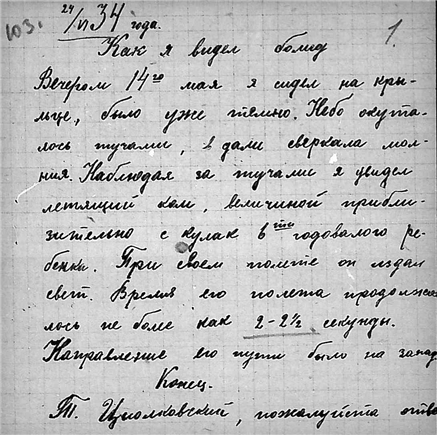 103. 24/VI 34 года. 1.
Как я видел болид
Вечером 14го мая я сидел на кры-
льце, было уже темно. Небо окута-
лось тучами, в дали сверкала мол-
ния. Наблюдая за тучами я увидел
летящий ком, величиной прибли-
зительно с кулак 8ми годовалого ре-
бенка. При своем полете он издал
свет. Время его полета продолжа
лось не боле как 2-2½ секунды.
Направление его пути было на запад
Конец.
Т. Циолковский, пожалуйста отве